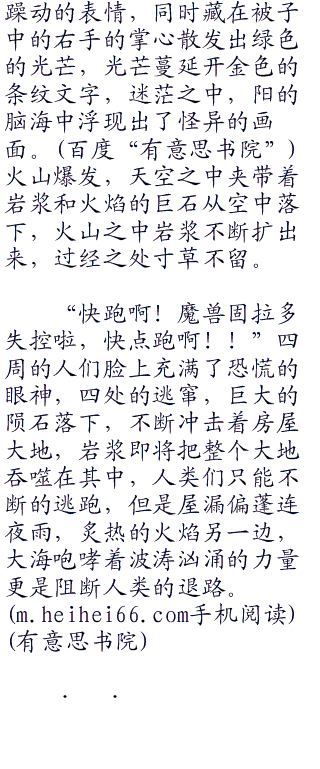 躁动的表情，同时藏在被子
中的右手的掌心散发出绿色
的光芒，光芒蔓延开金色的
条纹文字，迷茫之中，阳的
脑海中浮现出了怪异的画
面。(百度“有意思书院”)
火山爆发，天空之中夹带着
岩浆和火焰的巨石从空中落
下，火山之中岩浆不断扩出
来，过经之处寸草不留。
“快跑啊！魔兽固拉多
失控啦，快点跑啊！！”四
周的人们脸上充满了恐慌的
眼神，四处的逃窜，巨大的
陨石落下，不断冲击着房屋
大地，岩浆即将把整个大地
吞噬在其中，人类们只能不
断的逃跑，但是屋漏偏蓬连
夜雨，炙热的火焰另一边，
大海咆哮着波涛汹涌的力量
更是阻断人类的退路。
(m.heihei66.com手机阅读)
(有意思书院)
. .